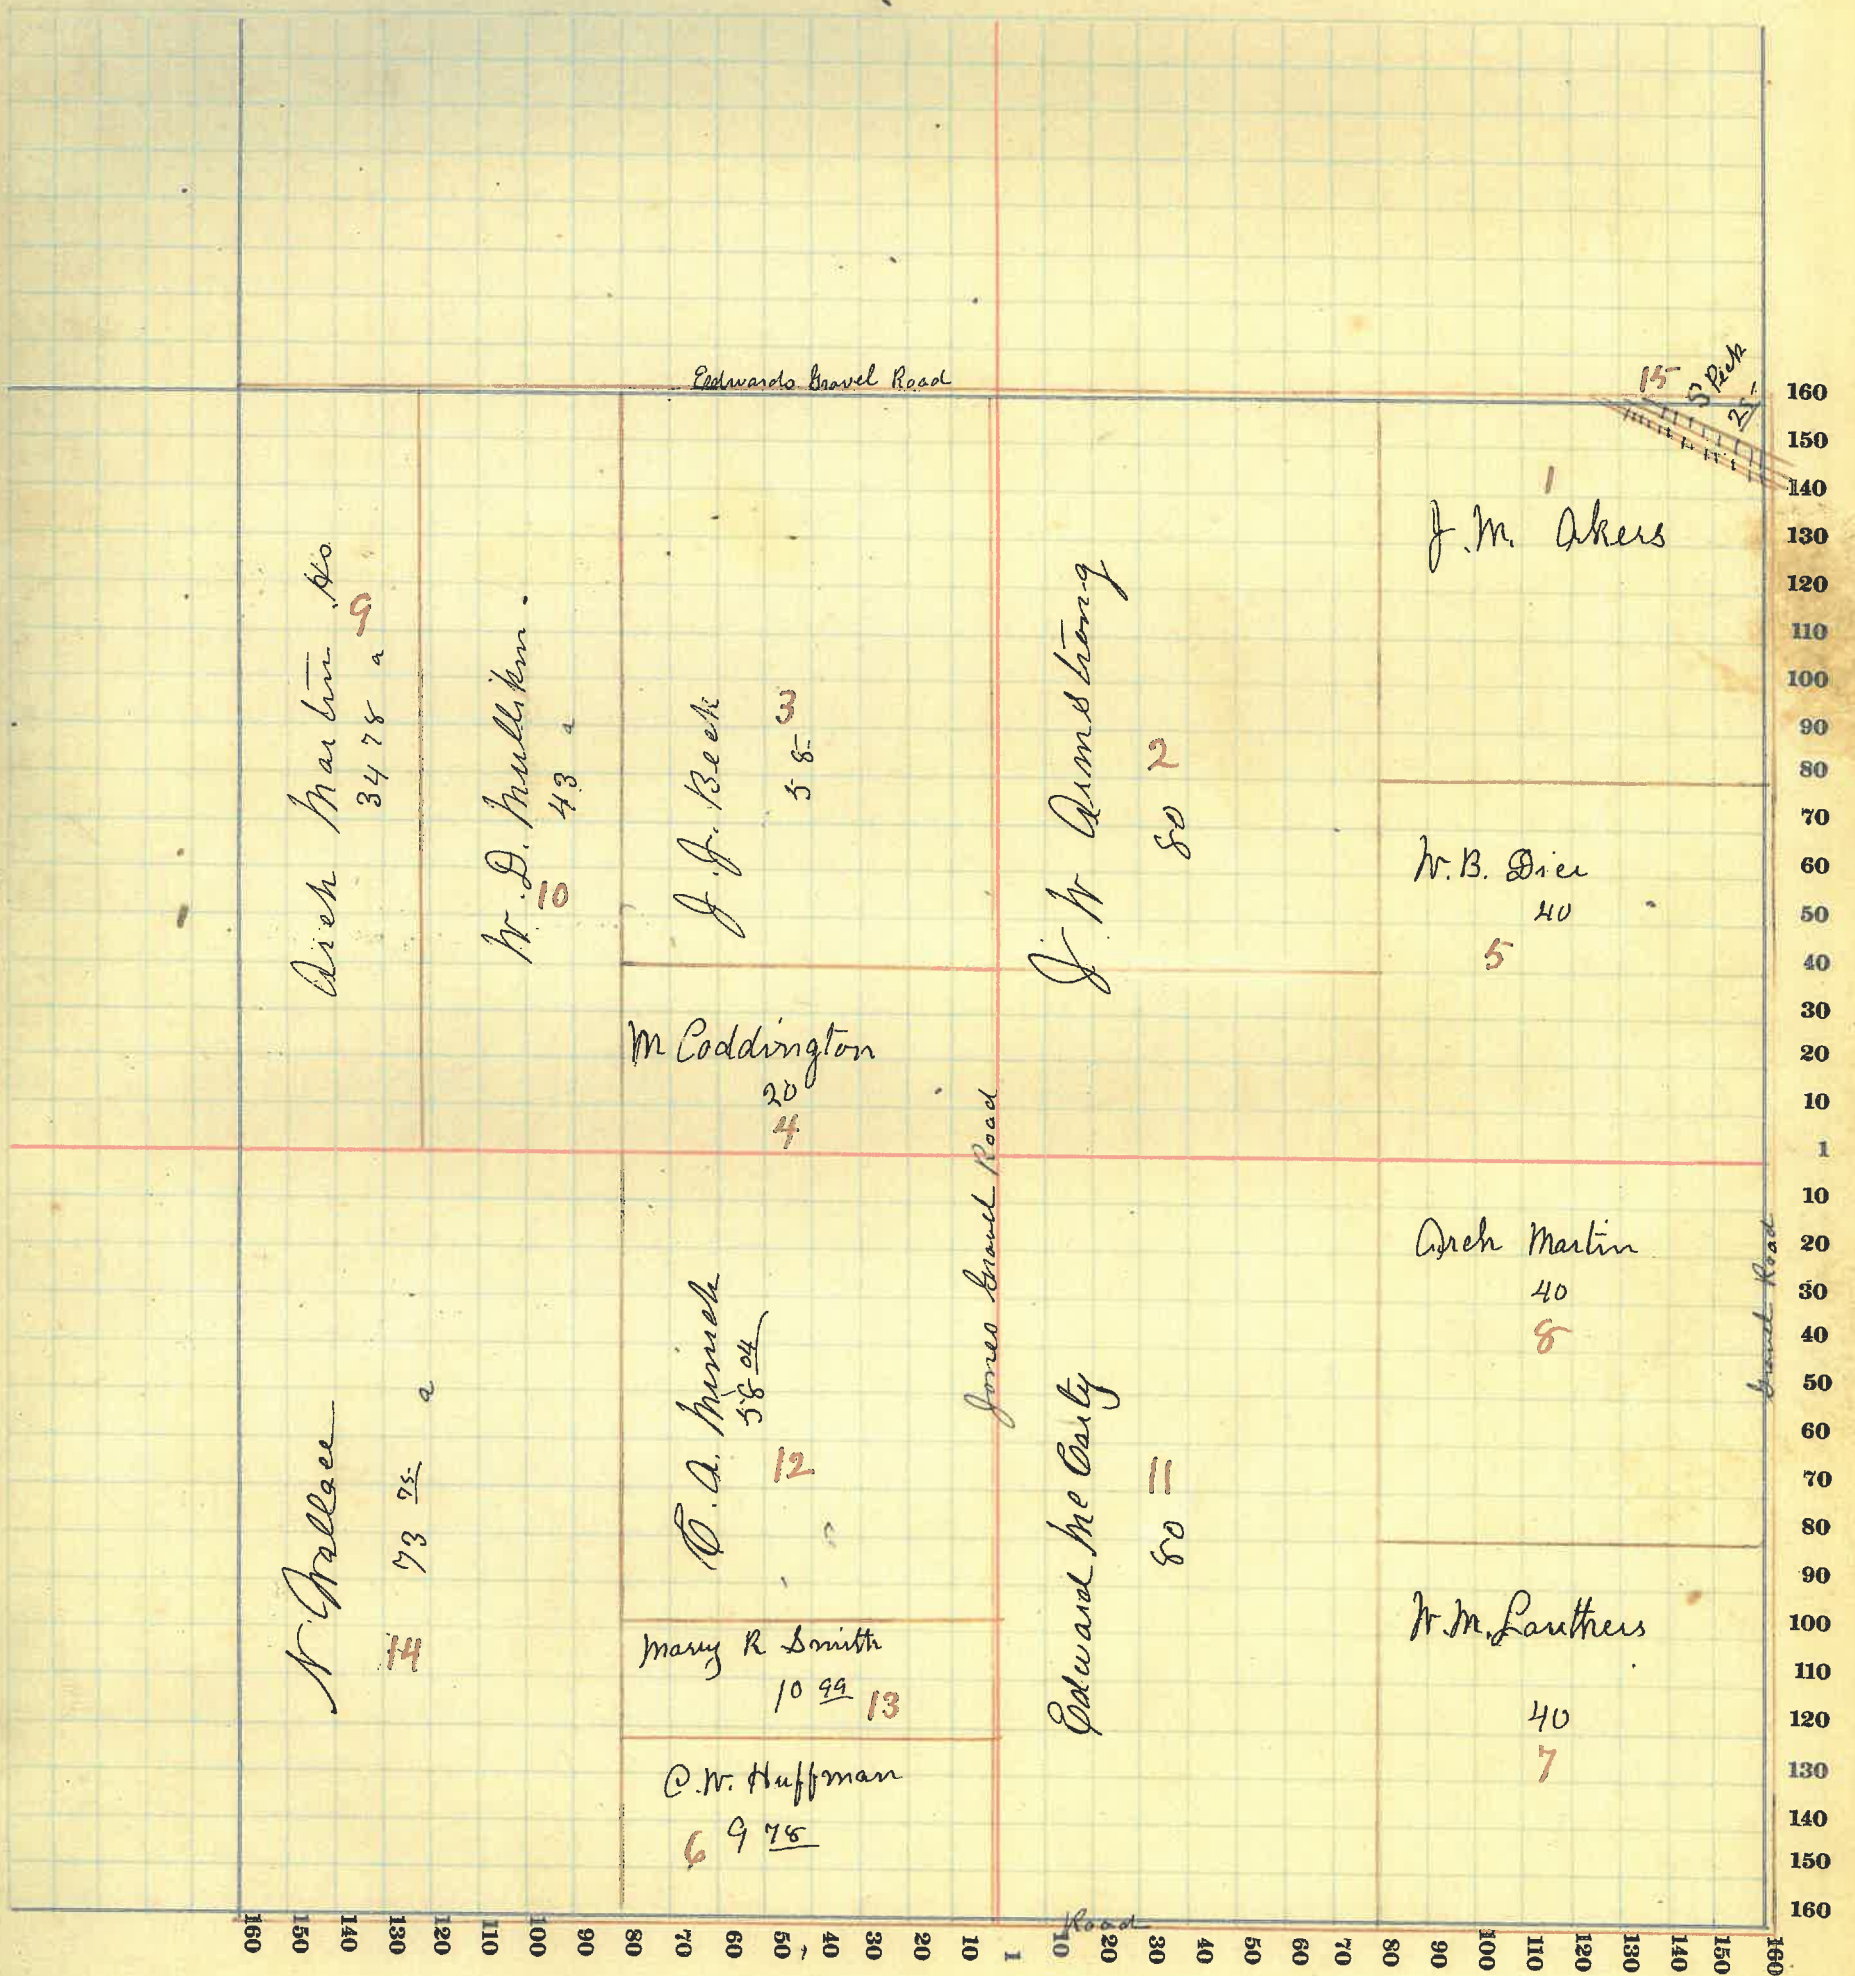 Edwards Gravel Road
15
S Peck
25
1
J. M. Akers
Arch Martin
9
34 78 a
W. D. Mullikin.
43 a
10
J. J. Beck
3
58
J W Armstrong
2
80
W. B. Dier
40
5
M Coddington
20
4
Jones Gravel Road
Arch Martin
40
8
Gravel Road
N Wallace
73 75 a
14
C. A. Minch
58 04
12
Edward Mc Carty
11
80
W. M. Lauthers
40
7
Mary R Smith
10 99 13
C. W. Huffman
6 9 78
Road
160
150
140
130
120
110
100
90
80
70
60
50
40
30
20
10
1
10
20
30
40
50
60
70
80
90
100
110
120
130
140
150
160
160
150
140
130
120
110
100
90
80
70
60
50
40
30
20
10
1
10
20
30
40
50
60
70
80
90
100
110
120
130
140
150
160